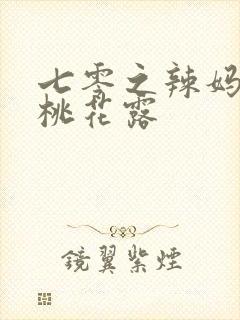 七零之辣妈
桃花露
鏡翼紫煙